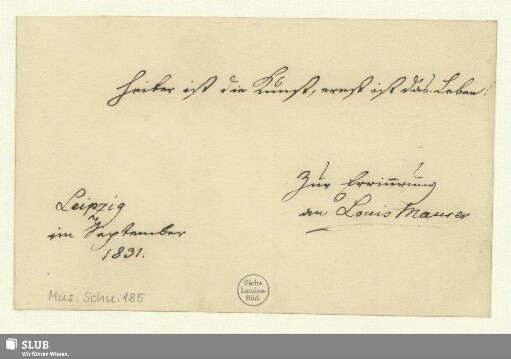 Heiter ist die Kunst, ernst ist das Leben!
Zur Erinnrung
an Louis Maurer
Leipzig
im September
1831.
Mus. Schu. 185
Sächs.
Landes-
Bibl.
SLUB
Wir führen Wissen.